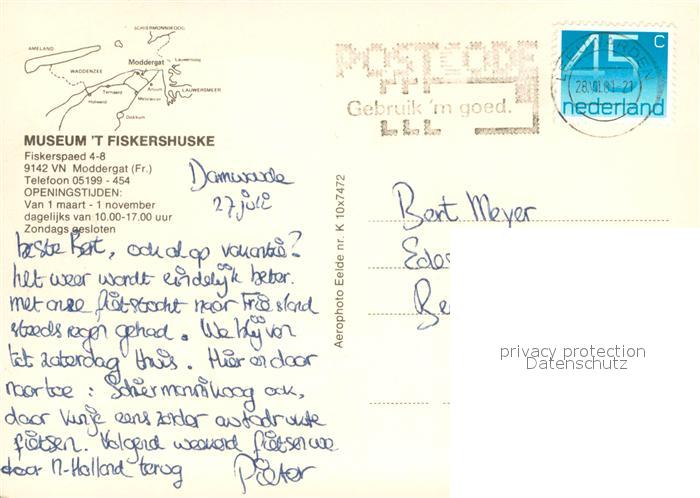 SCHIERMONNIKOOG
AMELAND
WADDENZEE
Moddergat
Lauwersoog
LAUWERSMEER
Ternaard
Anjum
Holwerd
Metslawier
Dokkum
MUSEUM 'T FISKERSHUSKE
Fiskerspaed 4-8
9142 VN Moddergat (Fr.)
Telefoon 05199 - 454
OPENINGSTIJDEN:
Van 1 maart - 1 november
dagelijks van 10.00-17.00 uur
Zondags gesloten
Damwoude
27 juli
beste Bert, ook al op vakantie?
het weer wordt eindelijk beter.
met onze fietstocht naar Friesland
steeds regen gehad. We blijven
tot zaterdag thuis. Hier en daar
naartoe: Schiermonnikoog ook,
daar kun je eens zonder autodrukte
fietsen. Volgend weekend fietsen we
door N-Holland terug
Pieter
Aerophoto Eelde nr. K 10x7472
POSTCODE
Gebruik 'm goed.
45 C
nederland
28.VII.81-21
Bert Meyer
privacy protection
Datenschutz